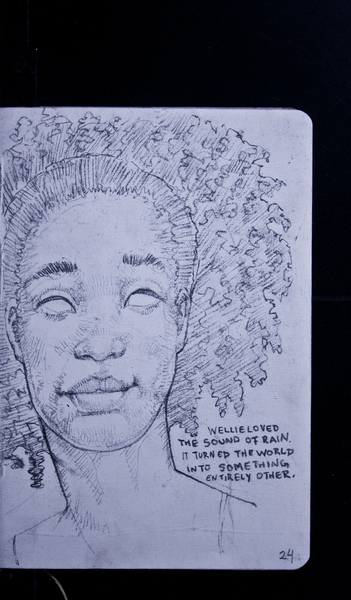 WELLIE LOVED
THE SOUND OF RAIN.
IT TURNED THE WORLD
INTO SOMETHING
ENTIRELY OTHER.
24